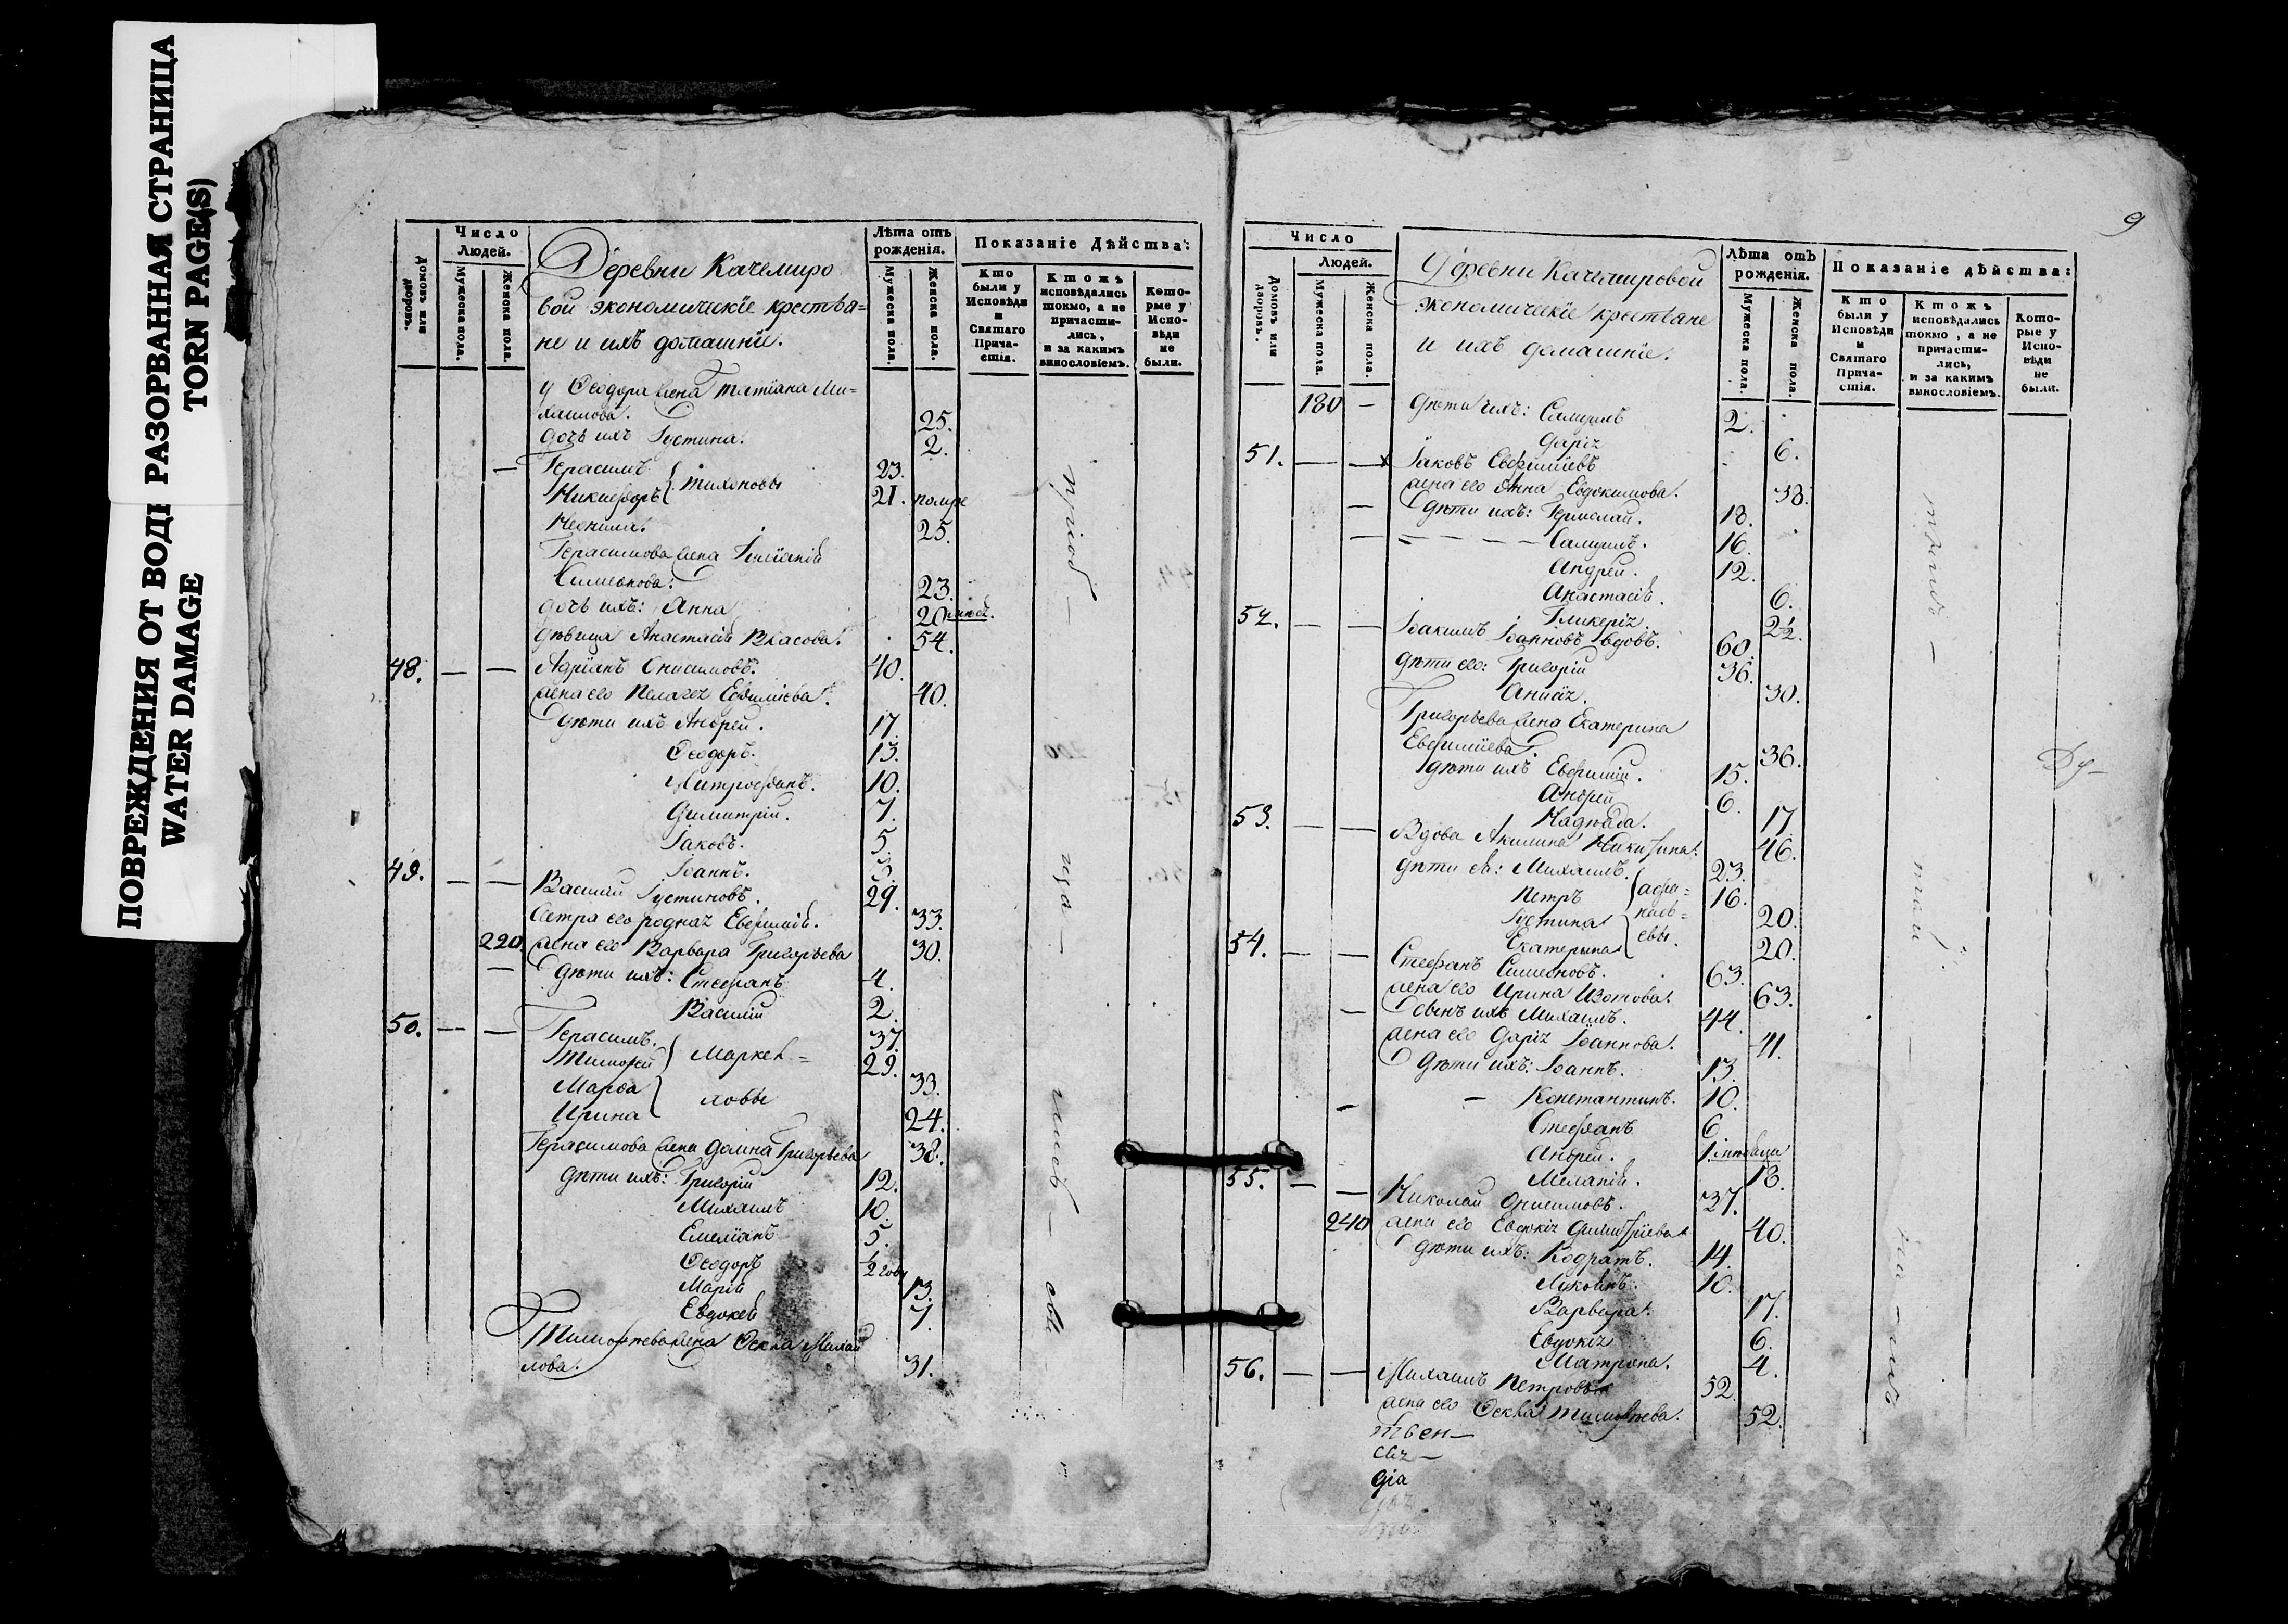 ПОВРЕЖДЕНИЯ ОТ ВОДЫ РАЗОРВАННАЯ СТРАНИЦА
WATER DAMAGE TORN PAGE(S)
Домовъ или дворовъ.
Число Людей.
Мужеска пола.
Женска пола.
Деревни Качемиро
вой экономическіе крестья=
не и ихъ домашніе.
Лѣта отъ рожденія.
Мужеска пола.
Женска пола.
Показаніе Дѣйства:
Кто были у Исповѣди и Святаго Прича-стія.
Ктожъ исповѣдались токмо, а не причасти-лись, и за какимъ винословіемъ.
Кото-рые у Испо-вѣди не были.
у Ѳеодора жена Татіана Ми=
хаилова. 25.
дочь ихъ Іустина. 2.
— Герасимъ 23.
Никифоръ } Тихоновы 21. помре
25.
Герасимова жена
Симеонова. 23.
дочь ихъ: Анна 20
дѣвица Анастасія Власова. 54.
48. — — Адріанъ Онисимовъ. 40.
жена его Пелагея Евфиміева. 40.
дѣти ихъ Андрей. 17.
Ѳеодоръ. 13.
Митрофанъ. 10.
Димитрій. 7.
Іаковъ. 5.
Іоаннъ. 3.
49. — — Василій Іустиновъ. 29.
Сестра его родная Евфимія. 33.
220. жена его Варвара Григорьева 30.
— дѣти ихъ: Стефанъ 4.
Василій 2.
50. — — Герасимъ. 37.
Тимофей } Маркел= 29.
Марѳа 33.
Ирина } ловы 24.
Герасимова жена Домна Григорьева 38.
дѣти ихъ: Григорій 12.
Михаилъ 10.
Емеліанъ 5.
Ѳеодоръ ½ года
Марія 13.
Евдокея 7.
Тимофеева жена Ѳекла Михаи
лова. 31.
9
Домовъ или дворовъ.
Число Людей.
Мужеска пола.
Женска пола.
Деревни Качемировой
экономическіе крестьяне
и ихъ домашніе.
Лѣта отъ рожденія.
Мужеска пола.
Женска пола.
Показаніе дѣйства:
Кто были у Исповѣди и Святаго Прича-стія.
Ктожъ исповѣдались токмо, а не причасти-лись, и за какимъ винословіемъ.
Кото-рые у Испо-вѣди не были.
180 — дѣти ихъ: Самуилъ 2.
Дарія 6.
51. — — Іаковъ Евфиміевъ
жена его Анна Евдокимова. 38.
— дѣти ихъ: Ермолай. 18.
Самуилъ. 16.
Андрей. 12.
Анастасія. 6.
Гликерія. 2½.
52. — — Іоакимъ Іоанновъ вдовъ. 60.
дѣти его: Григорій 36.
Анисія. 30.
Григорьева жена Екатерина
Евфиміева. 36.
дѣти ихъ Евфимій. 15.
Андрей 6.
Надежда. 17.
53. — — Вдова Акилина Никитина. 46.
дѣти ея: Михаилъ. 23.
Петръ 16.
Іустина 20.
Екатерина 20.
54. — — Стефанъ Симеоновъ. 63.
жена его Ирина Изотова. 63.
— сынъ ихъ Михаилъ. 44.
жена его Дарія Іоаннова. 41.
дѣти ихъ: Іоаннъ. 13.
— Константинъ. 10.
Стефанъ 6.
Андрей. 1
Меланія. 18.
55. — — Николай Онисимовъ. 37.
240 жена его Евдокія Димитріева 40.
дѣти ихъ: Кодратъ. 14.
Лукоянъ. 10.
Варвара. 17.
Евдокія 6.
Матрона. 4.
56. — — Михаилъ Петровъ 52.
жена его Ѳекла Тимофеева. 52.
твен—
Ду—